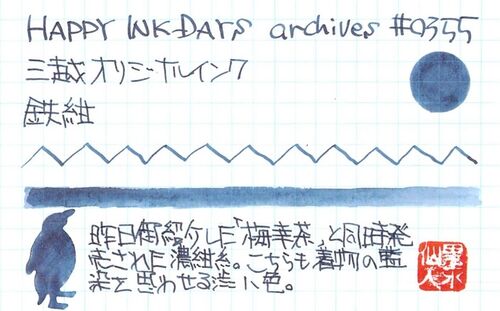 HAPPY INK-DAYS archives #0355
三越オリジナルインク
鉄紺
昨日御紹介した「梅幸茶」と同時発
売された濃紺系。こちらも着物の藍
染を思わせる渋い色。